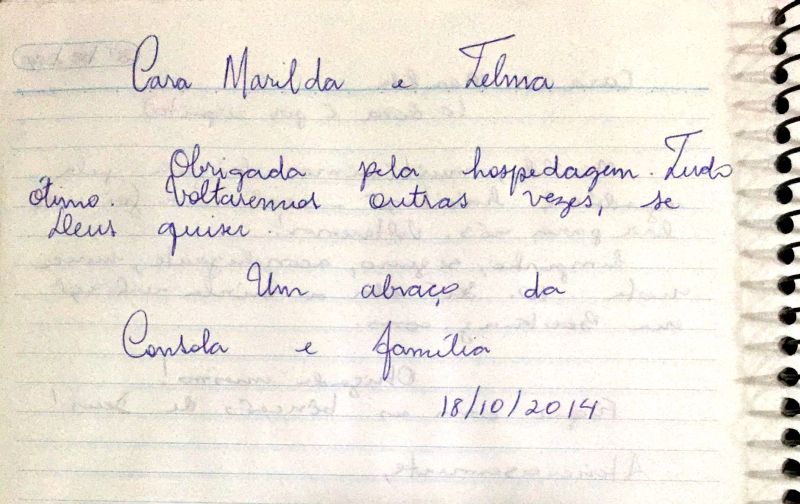 Cara Marilda e Telma
Obrigada pela hospedagem. Tudo
ótimo. Voltaremos outras vezes, se
Deus quiser.
Um abraço da
Consola e família
18/10/2014